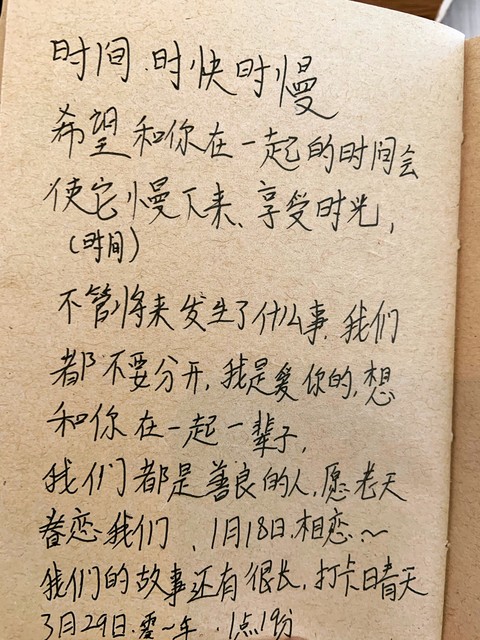 时间.时快时慢
希望和你在一起的时间会
使它慢下来、享受时光,
(时间)
不管将来发生了什么事.我们
都不要分开,我是爱你的,想
和你在一起一辈子,
我们都是善良的人,愿老天
眷恋我们、1月18日.相恋.~
我们的故事还有很长,打卡晴天
3月29日. 一年.1点19分